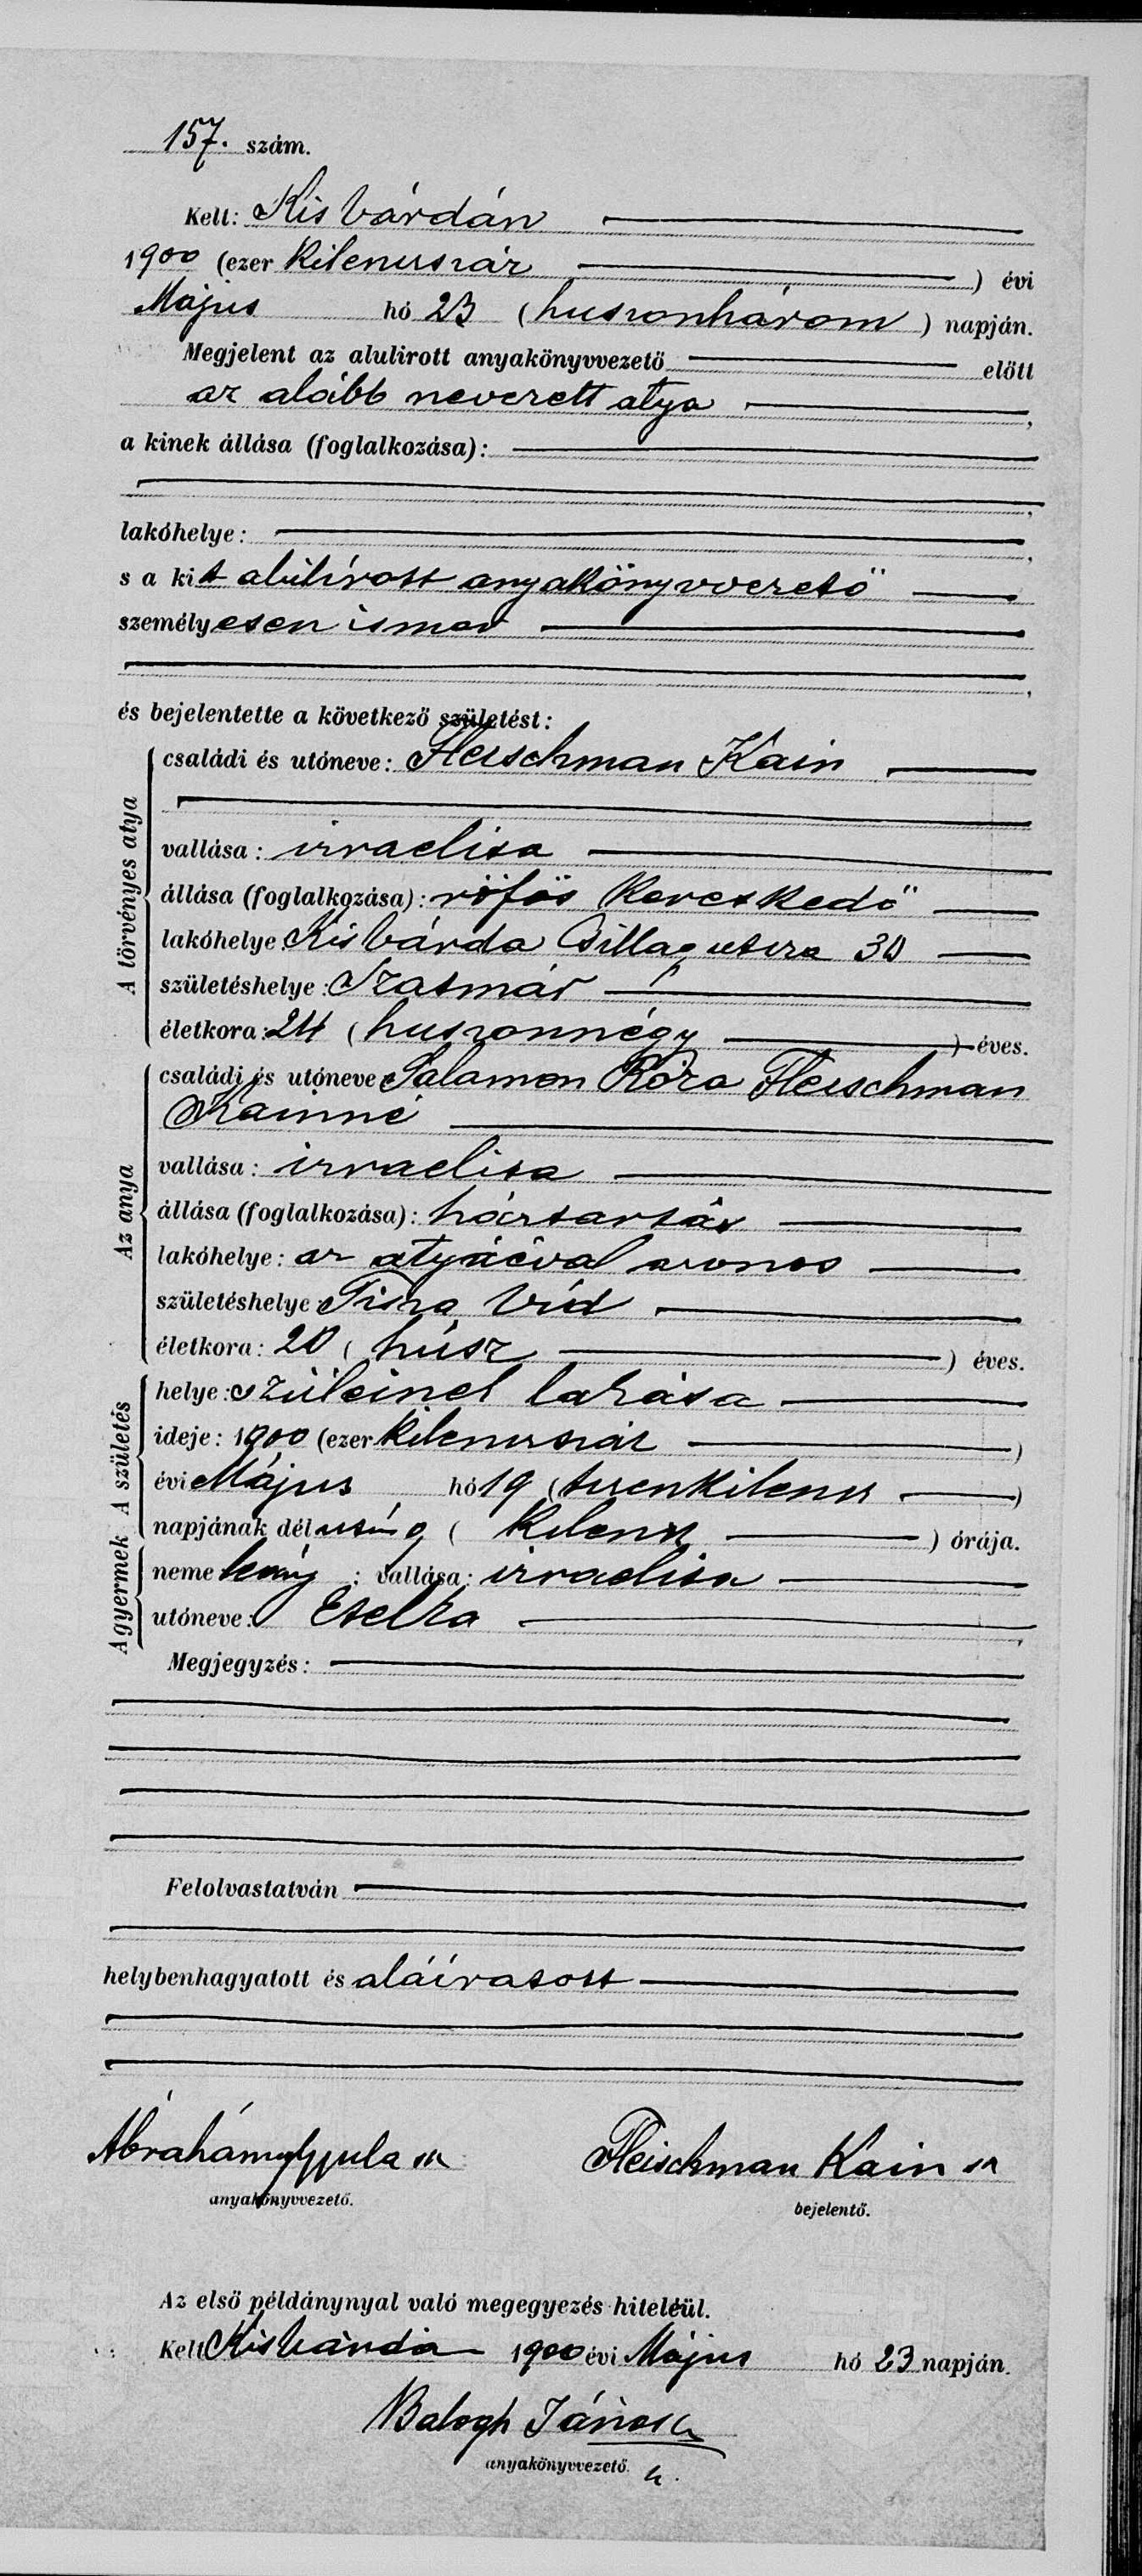 157. szám.
Kelt: Kis Várdán
1900 (ezer kilenczszáz ) évi
Május hó 23 (huszonhárom) napján.
Megjelent az alulirott anyakönyvvezető előtt
az alább nevezett atya ,
a kinek állása (foglalkozása):
,
lakóhelye: ,
s a kit alúlírott anyakönyvvezető
személyesen ismer
,
és bejelentette a következő születést:
A törvényes atya
családi és utóneve: Fleischman Kain
vallása: izraelita
állása (foglalkozása): röfös kereskedő
lakóhelye: Kis Várda Csillag utcza 30
születéshelye: Szatmár
életkora: 24 (huszonnégy ) éves.
Az anya
családi és utóneve: Salamon Róza Fleischman
Kainné
vallása: izraelita
állása (foglalkozása): háztartás
lakóhelye: az atyáéval azonos
születéshelye: Tisza Vid
életkora: 20 (húsz ) éves.
A születés
helye: szüleinek lakása
ideje: 1900 (ezer kilenczszáz )
évi Május hó 19 (tizenkilencz )
napjának délután 9 ( kilencz ) órája.
A gyermek
neme leány : vallása: izraelita
utóneve: Etelka ,
Megjegyzés:
Felolvastatván
helybenhagyatott és aláíratott
Ábrahám Gyula sk Fleischman Kain sk
anyakönyvvezető. bejelentő.
Az első példánynyal való megegyezés hiteléül.
Kelt Kisvárda 1900 évi Május hó 23 napján.
Balogh János
anyakönyvvezető.